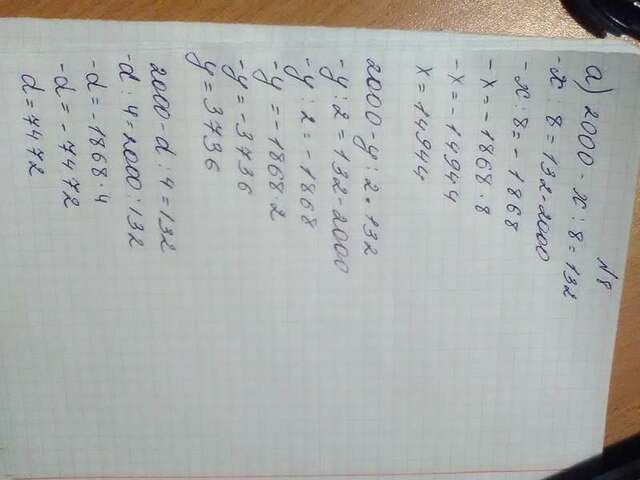 N8
а) 2000 - x : 8 = 132
-x : 8 = 132 - 2000
-x : 8 = -1868
-x = -1868 · 8
-x = -14944
x = 14944
2000 - y : 2 = 132
-y : 2 = 132 - 2000
-y : 2 = -1868
-y = -1868 · 2
-y = -3736
y = 3736
2000 - d : 4 = 132
-d : 4 = 2000 : 132
-d = -1868 · 4
-d = -7472
d = 7472